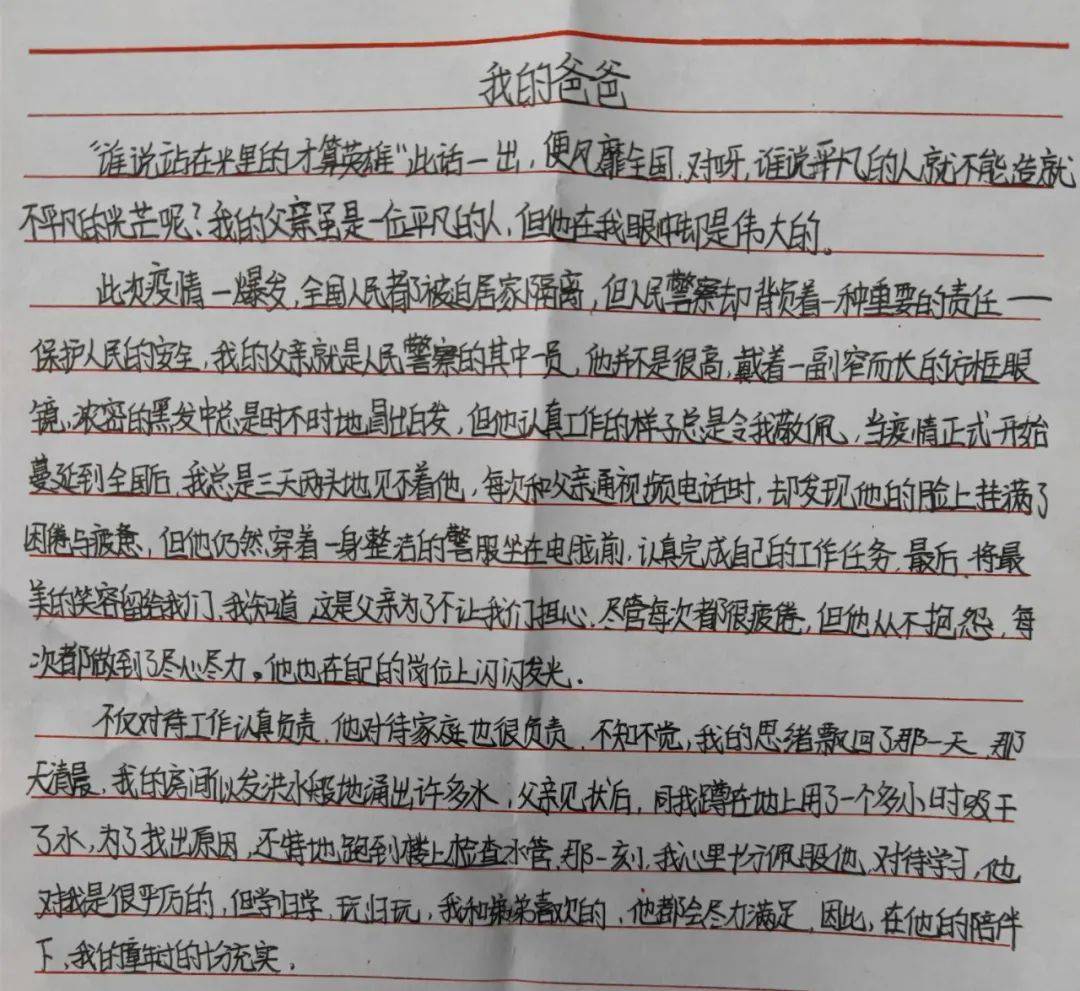 我的爸爸
“谁说站在光里的才算英雄”此话一出，便风靡全国，对呀，谁说平凡的人就不能造就
不平凡的光芒呢？我的父亲虽是一位平凡的人，但他在我眼中却是伟大的。
此次疫情一爆发，全国人民都被迫居家隔离，但人民警察却背负着一种重要的责任——
保护人民的安全，我的父亲就是人民警察的其中一员，他并不是很高，戴着一副窄而长的方框眼
镜，浓密的黑发中总是时不时地冒出白发，但他认真工作的样子总是令我敬佩，当疫情正式开始
蔓延到全国后，我总是三天两头地见不着他，每次和父亲通视频电话时，却发现他的脸上挂满了
困倦与疲惫，但他仍然穿着一身整洁的警服坐在电脑前，认真完成自己的工作任务，最后，将最
美的笑容留给我们，我知道，这是父亲为了不让我们担心，尽管每次都很疲倦，但他从不抱怨，每
次都做到了尽心尽力。他也在自己的岗位上闪闪发光．
不仅对待工作认真负责，他对待家庭也很负责，不知不觉，我的思绪飘回了那一天，那
天清晨，我的房间似发洪水般地涌出许多水，父亲见状后，同我蹲在地上用了一个多小时吸干
了水，为了找出原因，还特地跑到楼上检查水管，那一刻，我心里十分佩服他，对待学习，他
对我是很严厉的，但学归学，玩归玩，我和弟弟喜欢的，他都会尽力满足，因此，在他的陪伴
下，我的童年过的十分充实．